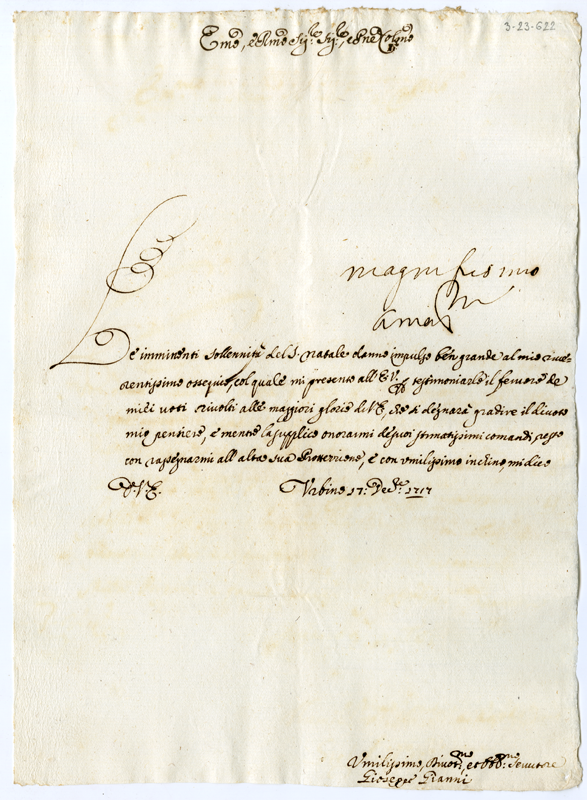 3-23-622
Emo, e Rmo Sig.re Sig.re, e Pne Colmo
magnificio mio
amar
Le imminenti Sollennità del S. Natale danno impulso ben grande al mio rive-
rentissimo ossequio, col quale mi presento all'E.V. p testimoniarle il fervore de
miei voti rivolti alle maggiori glorie di V.E., Se si degnarà gradire il divoto
mio pensiero, e mentre la supplico onorarmi de suoi stimatissimi comandi, resto
con rassegnarmi all'alta sua Protezzione, e con umilissimo inchino, mi dico
D. V.E. Urbino 17: Dec.re 1717
Umilissimo, Divot.mo et Obb.mo Servitore
Giuseppe Gianni